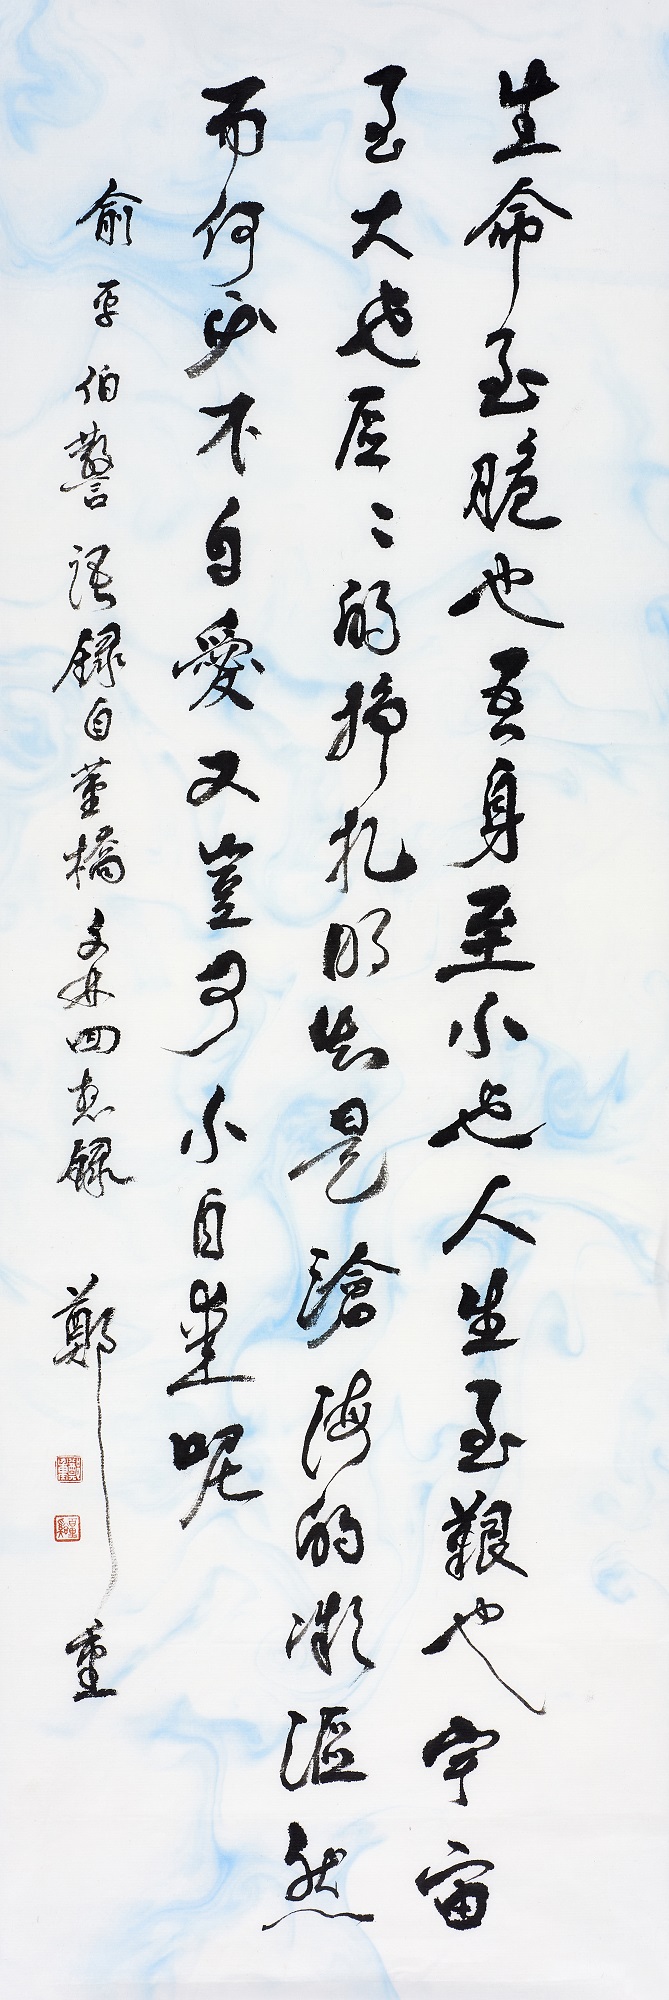 生命至脆也吾身至小也人生至艱也宇宙
至大也區々的掙扎明知是滄海的微漚然
而何必不自愛又豈可不自愛呢
俞平伯警語錄自董橋文林回想錄 鄭重